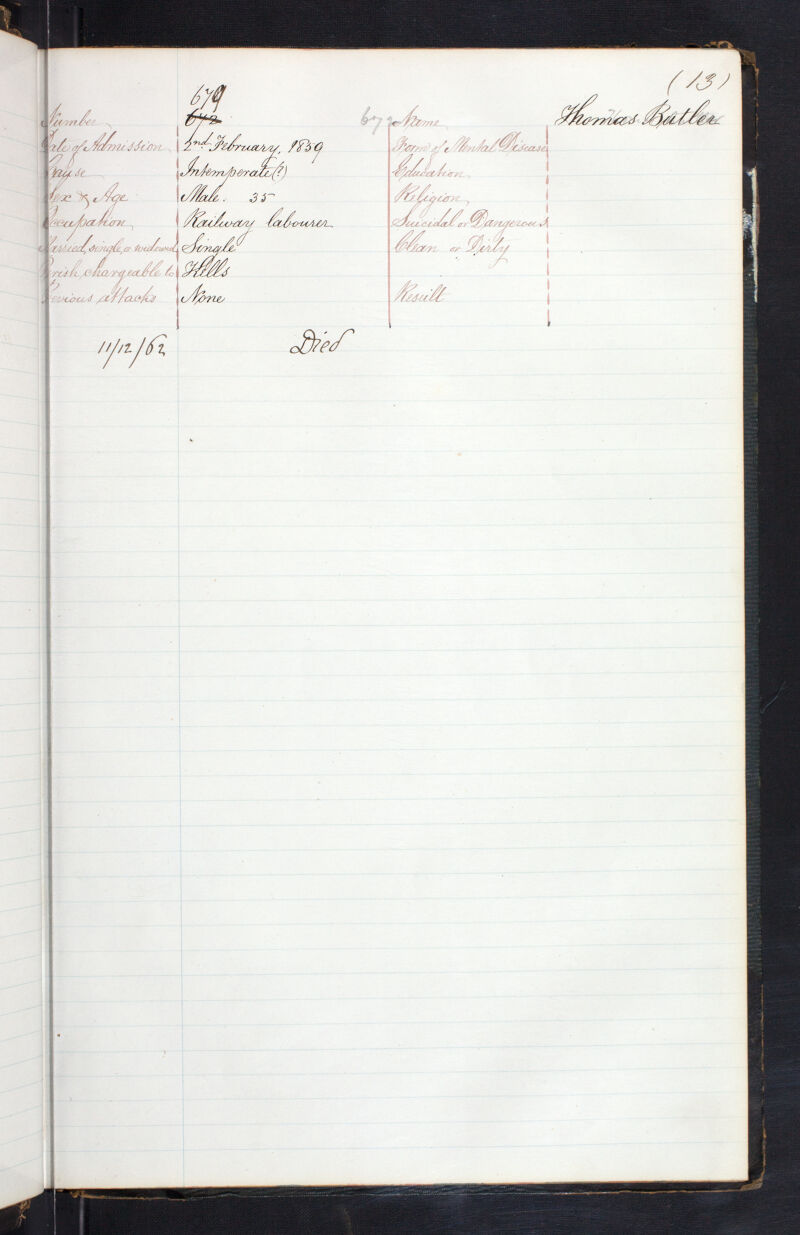 (13)
679
Number 672 679 Name Thomas Butler
Date of Admission 2nd February, 1859 Form of Mental Disease
Cause Intemperate (?) Education
Sex & Age Male. 35 Religion
Occupation Railway labourer Suicidal or Dangerous
Married, single, or widowed Single Clean or Dirty
Parish chargeable to Kells
Previous attacks None Result
11/12/62 Died